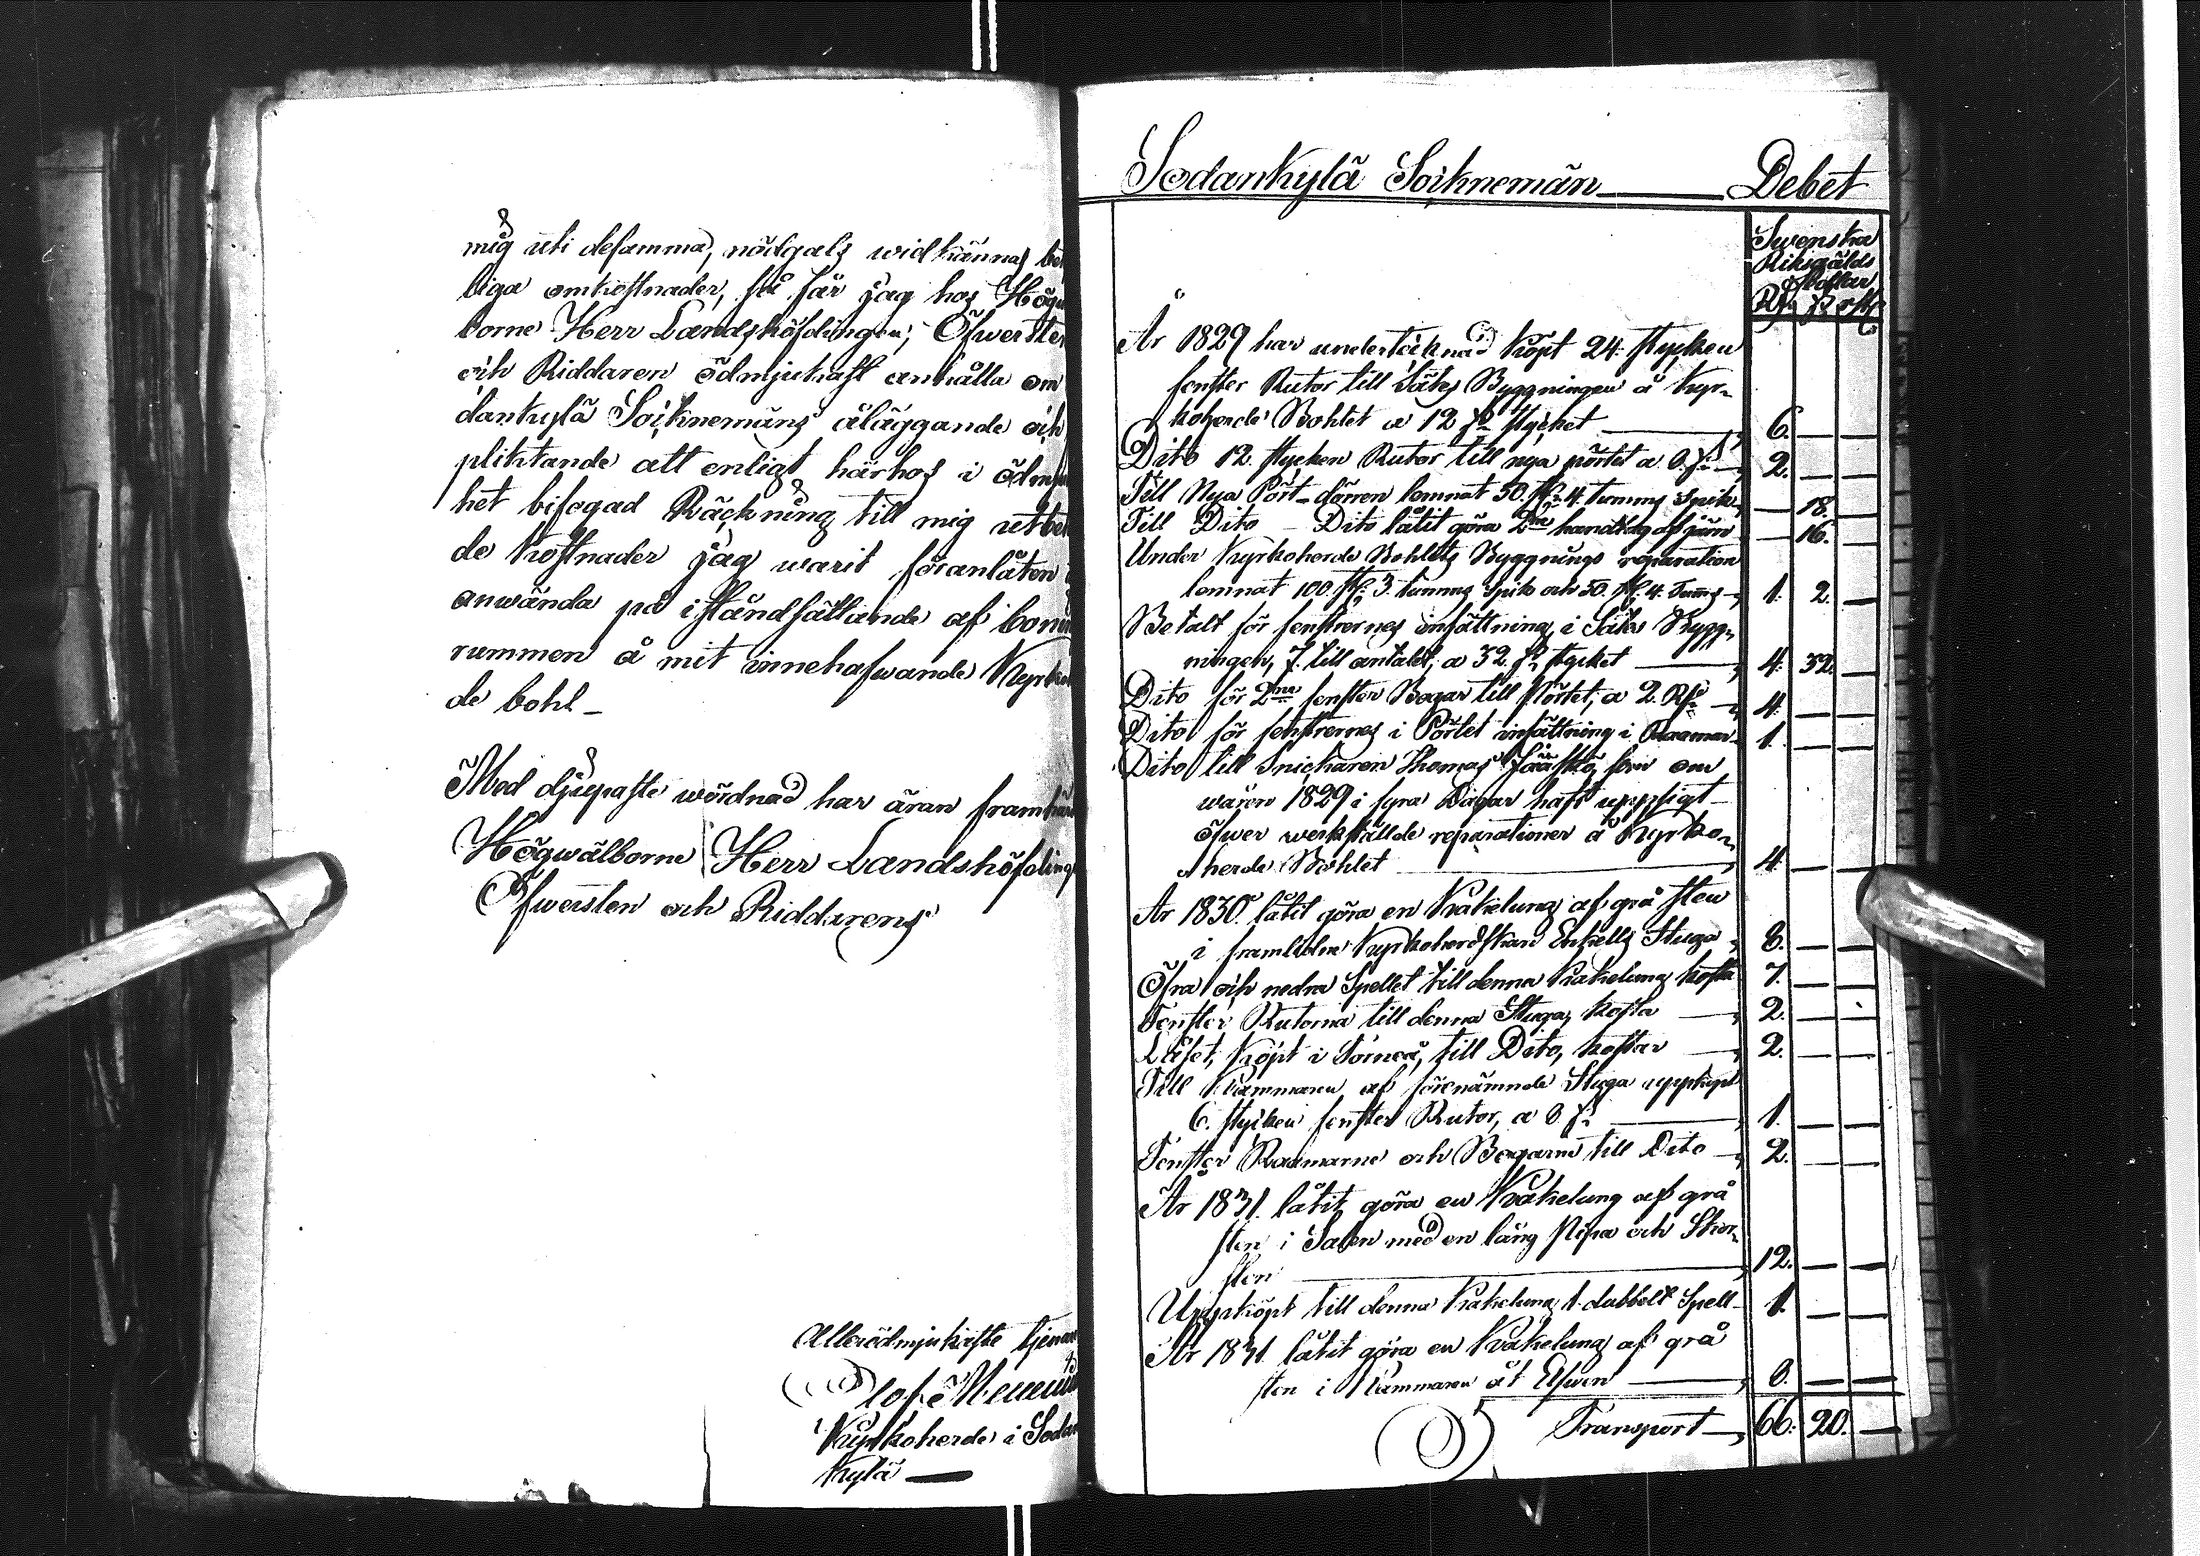 mig uti desamma, nödgats widkännas be
liga omkostnader, så får jag hos Högw
borne Herr Landshöfdingen, Öfwersten
och Riddaren ödmjukast anhålla om
dankylä Socknemäns åläggande och
pliktande att enligt härhos i ödmju
het bifogad Räckning till mig utbe
de kostnader jag warit föranlåten
använda på iståndsättande af bonin
rummen å mit innehafwande Kyrko
de bohl _
Med djupaste wördnad har äran framhär
Högwälborne Herr Landshöfding
Öfwersten och Riddarens
Allerödmjukaste tjenare
Olof
Kyrkoherde i Sodan
kylä
Sodankylä Socknemän Debet
Swenska
Riksgälds
Sedlar
Rd. ß. rst.
År 1829 har undertecknad köpt 24. stycken
fenster Rutor till Sätes Byggningen å Kyr-
koherde Bohlet a 12 ß stycket 6. — —
Dito 12. stycken Rutor till nya pörtet a 8. ß. 2. — —
Till Nya Pört-dörren lemnat 50. st. 4. tumms Spik — 18. —
Till Dito — Dito låtit göra 2ne handtag af järn — 16. —
Under Kyrkoherde Bohlets Byggnings reparation
lemnat 100. st. 3. tumms Spik och 50. st. 4. Tumms 1. 2. —
Betalt för fenstrernes insättning i Sätes Bygg-
ningen, 7. till antalet, a 32. ß. stycket 4. 32. —
Dito för 2ne fenster Bogar till Pörtet, a 2. Rd. 4. — —
Dito för fenstrernes i Pörtet insättning i Raamar 1. — —
Dito till Snickaren Thomas som om
wåren 1829 i fyra Dagar haft uppsigt
öfwer werkstälde reparationer å Kyrko-
herde Bohlet 4. — —
År 1830 låtit göra en Kakelung af grå sten
i framledne Kyrkoherdskan Enkells Stuga 8. — —
Öfra och nedra Spellet till denna Kakelung kosta 7. — —
Fenster Rutorna till denna Stuga, kosta 2. — —
Låset, köpt i Torneå, till Dito, kostar 2. — —
Till Kammaren af förenämnde Stuga uppköpt
6. stycken fenster Rutor, a 8 ß 1. — —
Fenster Raamarne och Bogarne till Dito 2. — —
År 1831. låtit göra en Kakelung af grå
sten i Salen med en lång Pipa och Skor-
sten 12. — —
Uppköpt till denna Kakelung 1. dubbelt Spell 1. — —
År 1831. låtit göra en Kakelung af grå
sten i Kammaren åt Elfwen 8. — —
Transport 66. 20. —